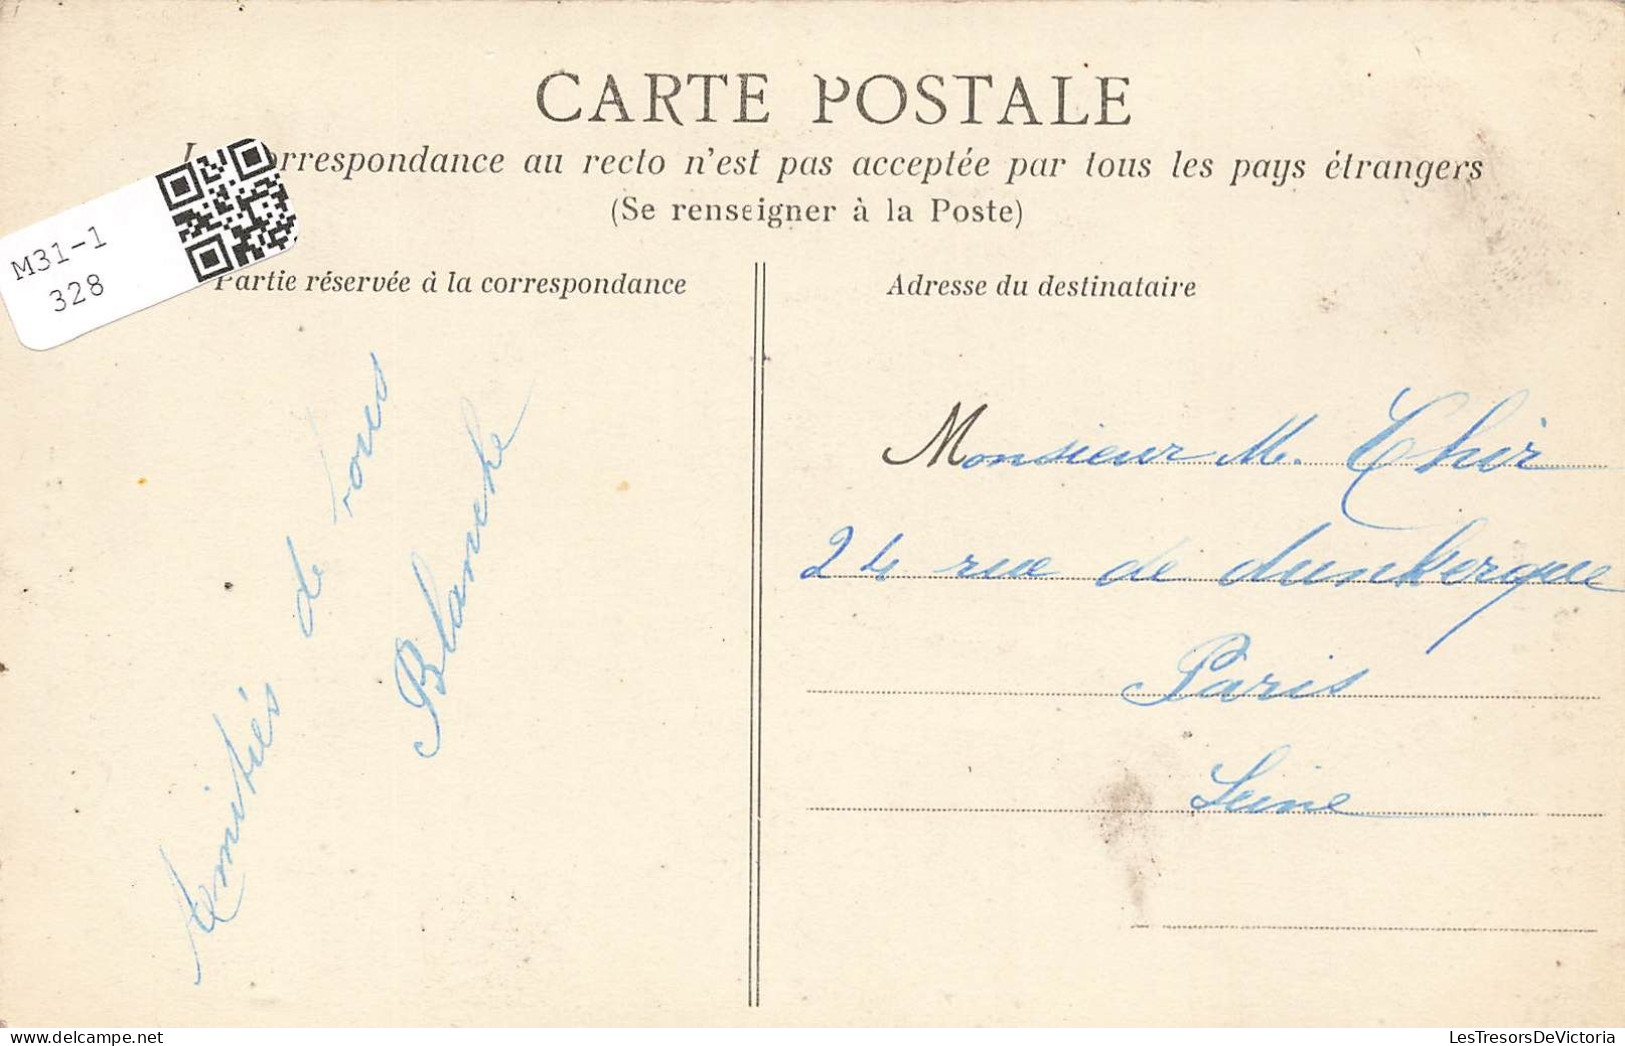 CARTE POSTALE
La correspondance au recto n'est pas acceptée par tous les pays étrangers
(Se renseigner à la Poste)
M31-1
328
Partie réservée à la correspondance
Amitiés de tous
Blanche
Adresse du destinataire
Monsieur M. Thir
24 rue de dunkerque
Paris
Seine
delcampe.net
LesTresorsDeVictoria